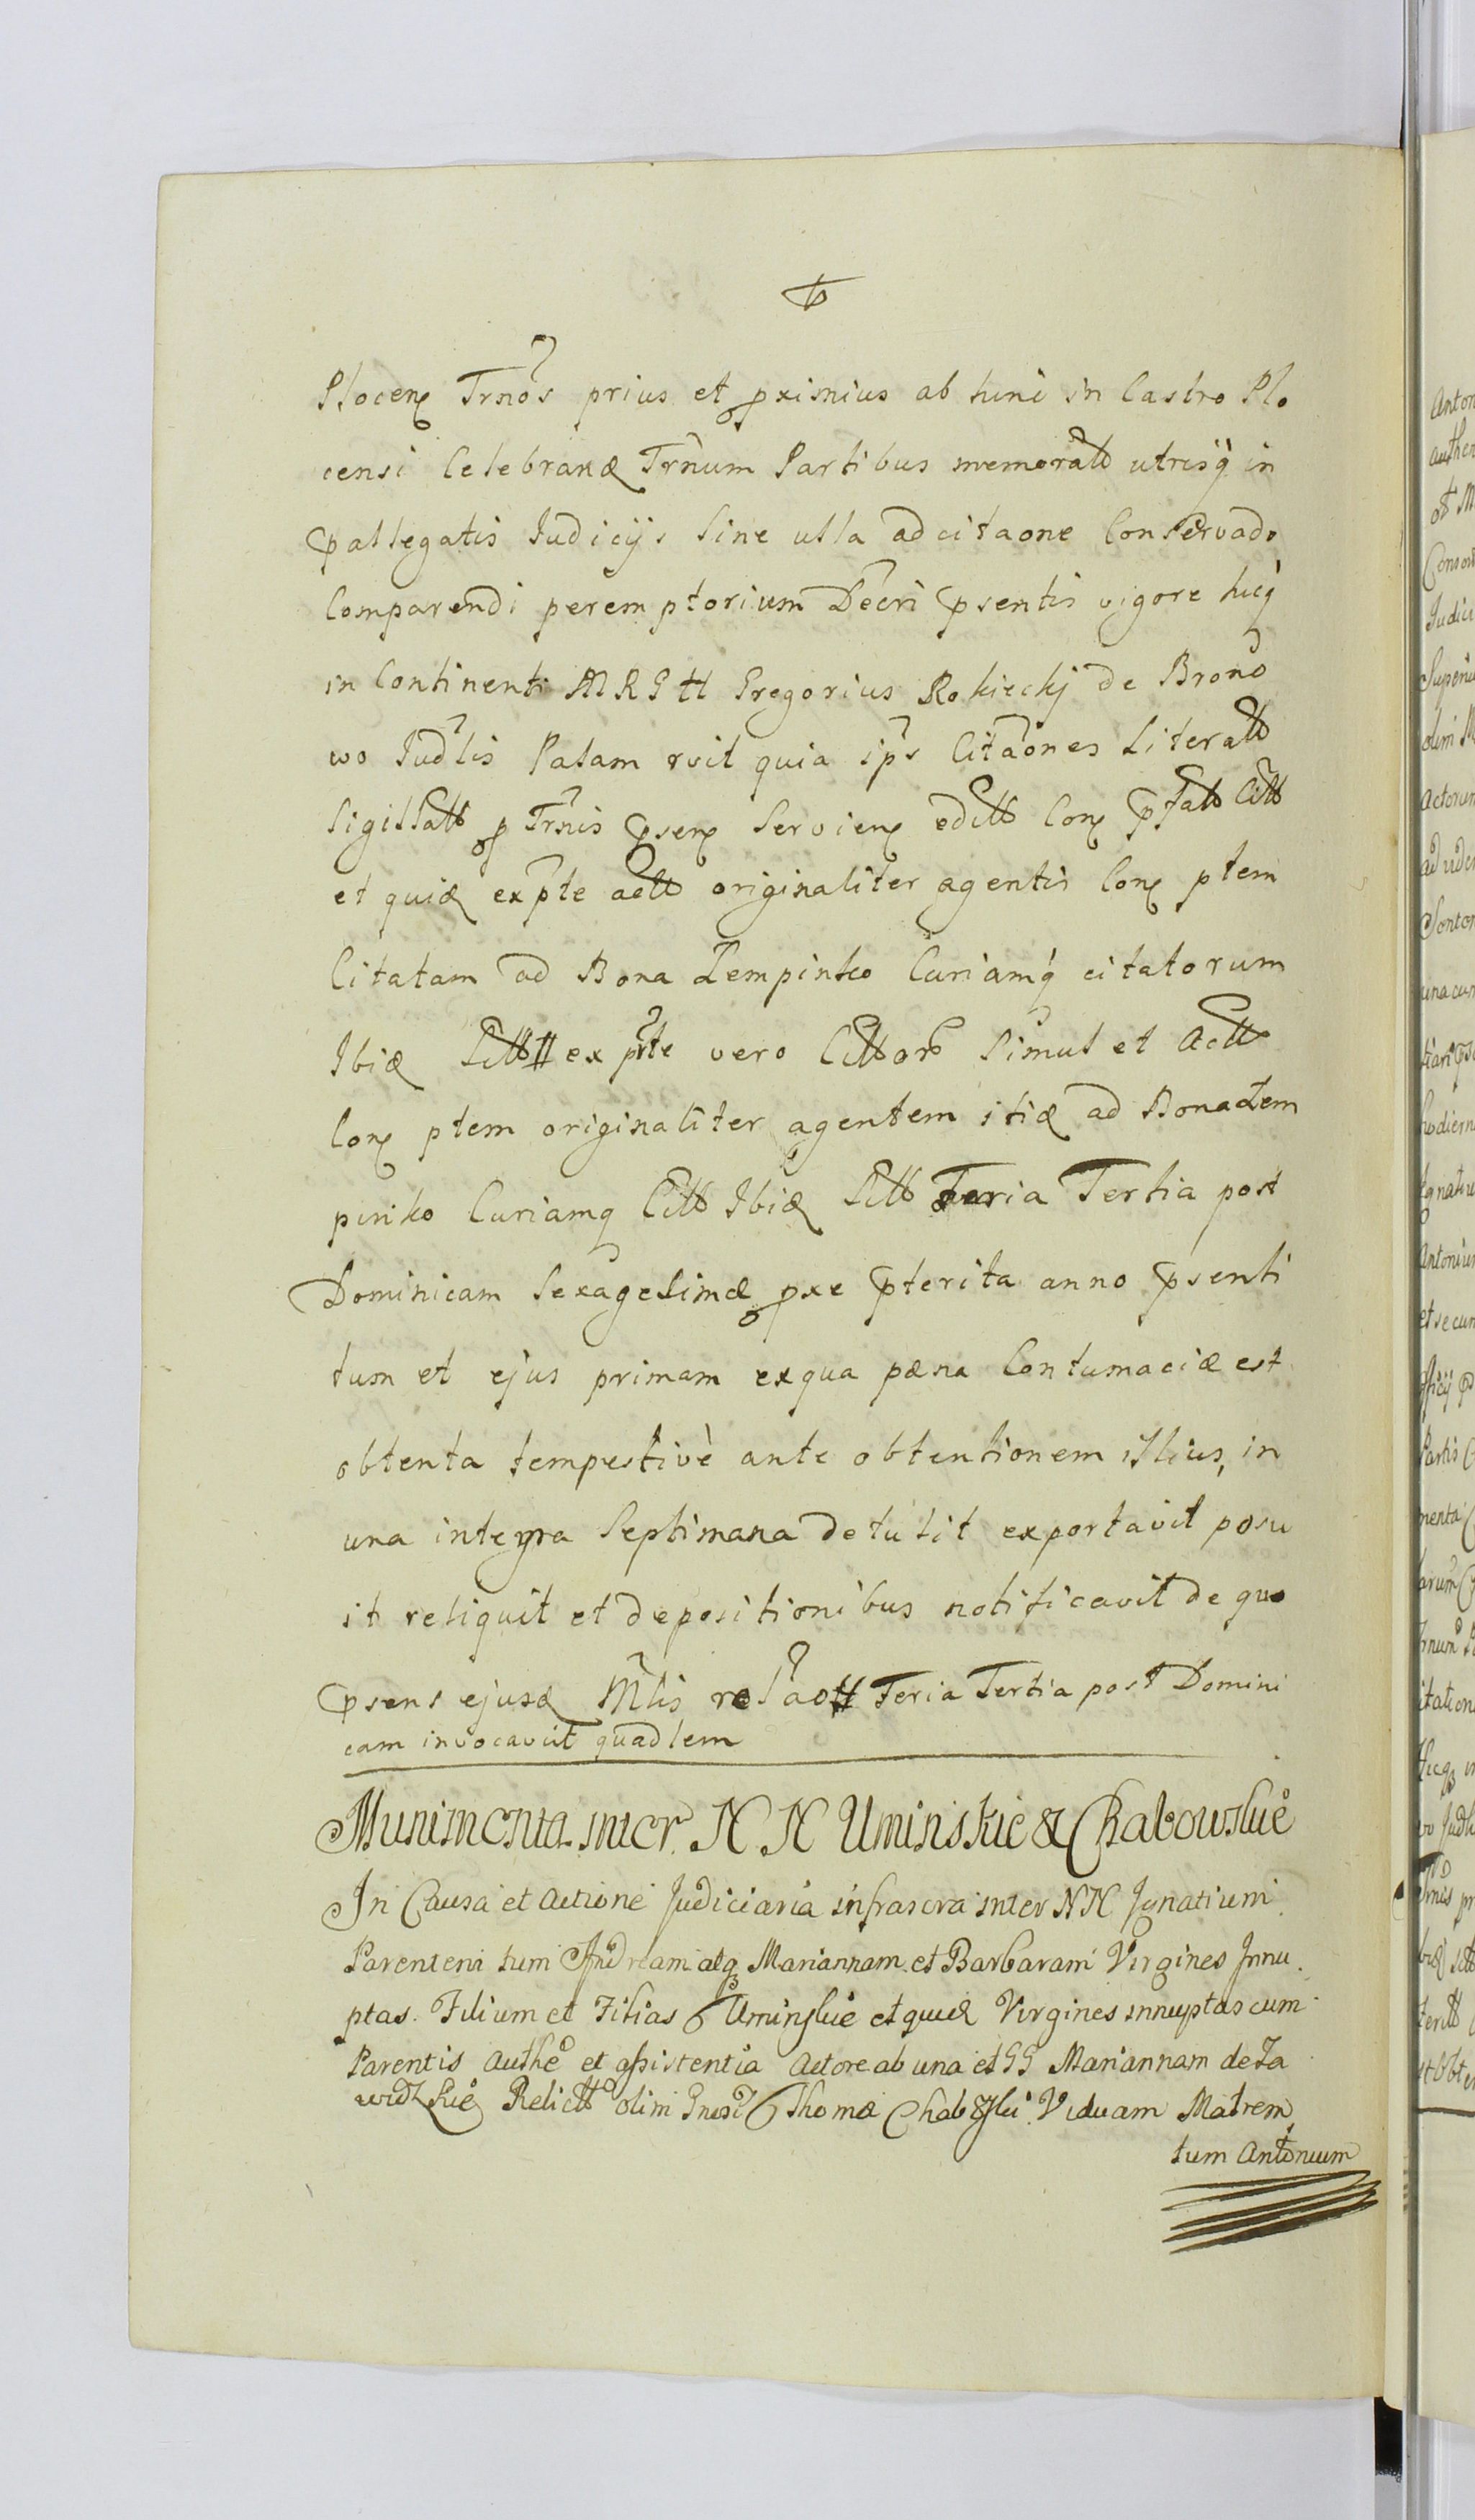 Plocen Trnos prius et pximius ab hinc in Castro Plo
censi Celebrand Trnum Partibus memoratt utrisq in
pallegatis Iudicijs Sine ulla adcitaone Conservado
Comparendi peremptorium Decri psentis vigore hicq
in Continenti MRGH Gregorius Rokieckj de Brono
wo Iudlis Palam rsit quia ips Citaones Literatt
Sigillatt p Trnis psen Servien editt Con pfatt Citt
et quid ex pte actt originaliter agentis Con ptem
Citatam ad Bona Lempinko Curiamq citatorum
Ibid Sitt ex prte vero Cittor Simul et Actt
Con ptem originaliter agentem itid ad Bona Lem
pinko Curiamq Citt Ibid Sitt Feria Tertia post
Dominicam Sexagesimæ pxe pterita anno psenti
tum et ejus primam ex qua pæna Contumaciæ est
obtenta tempestivè ante obtentionem illius, in
una integra Septimana detulit exportavit posu
it reliquit et depositionibus notificavit de quo
psens ejusd Mlis relao Feria Tertia post Domini
cam invocavit quadlem
Munimenta inter N N Uminskie & Chabowskie
In Causa et Actione Judiciaria infrascra inter NN Ignatium
Parentem tum Andream atq Mariannam et Barbaram Virgines Innu
ptas. Filium et Filias Uminskie et quid Virgines innuptas cum
Parentis Authe et assistentia Actore ab una et GG Mariannam de Za
widzkie Relictt olim Gnosi Thomæ Chabowski Viduam Matrem
tum Antonium